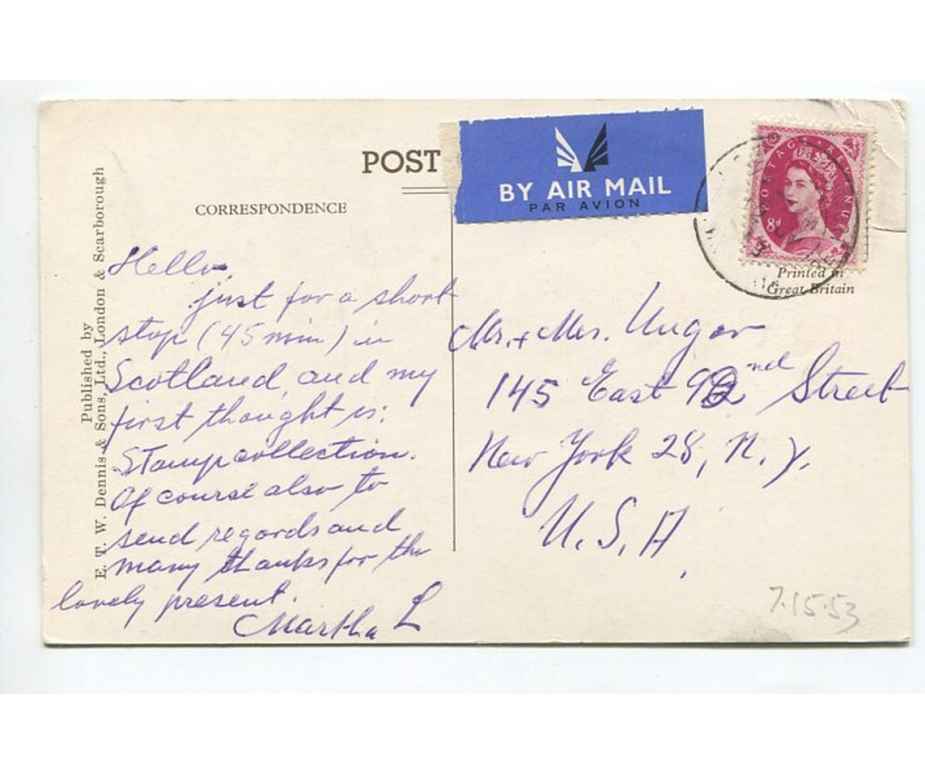 POST
BY AIR MAIL
PAR AVION
CORRESPONDENCE
POSTAGE REVENUE
8d
Printed in
Great Britain
Published by
E. T. W. Dennis & Sons, Ltd., London & Scarborough
Hello,
just for a short
stop (45 min) in
Scotland, and my
first thought is:
Stamp collection.
Of course also to
send regards and
many thanks for the
lovely present.
Martha L
Mr. + Mrs. Ungar
145 East 92nd Street
New York 28, N.Y.
U.S.A.
7.15.53